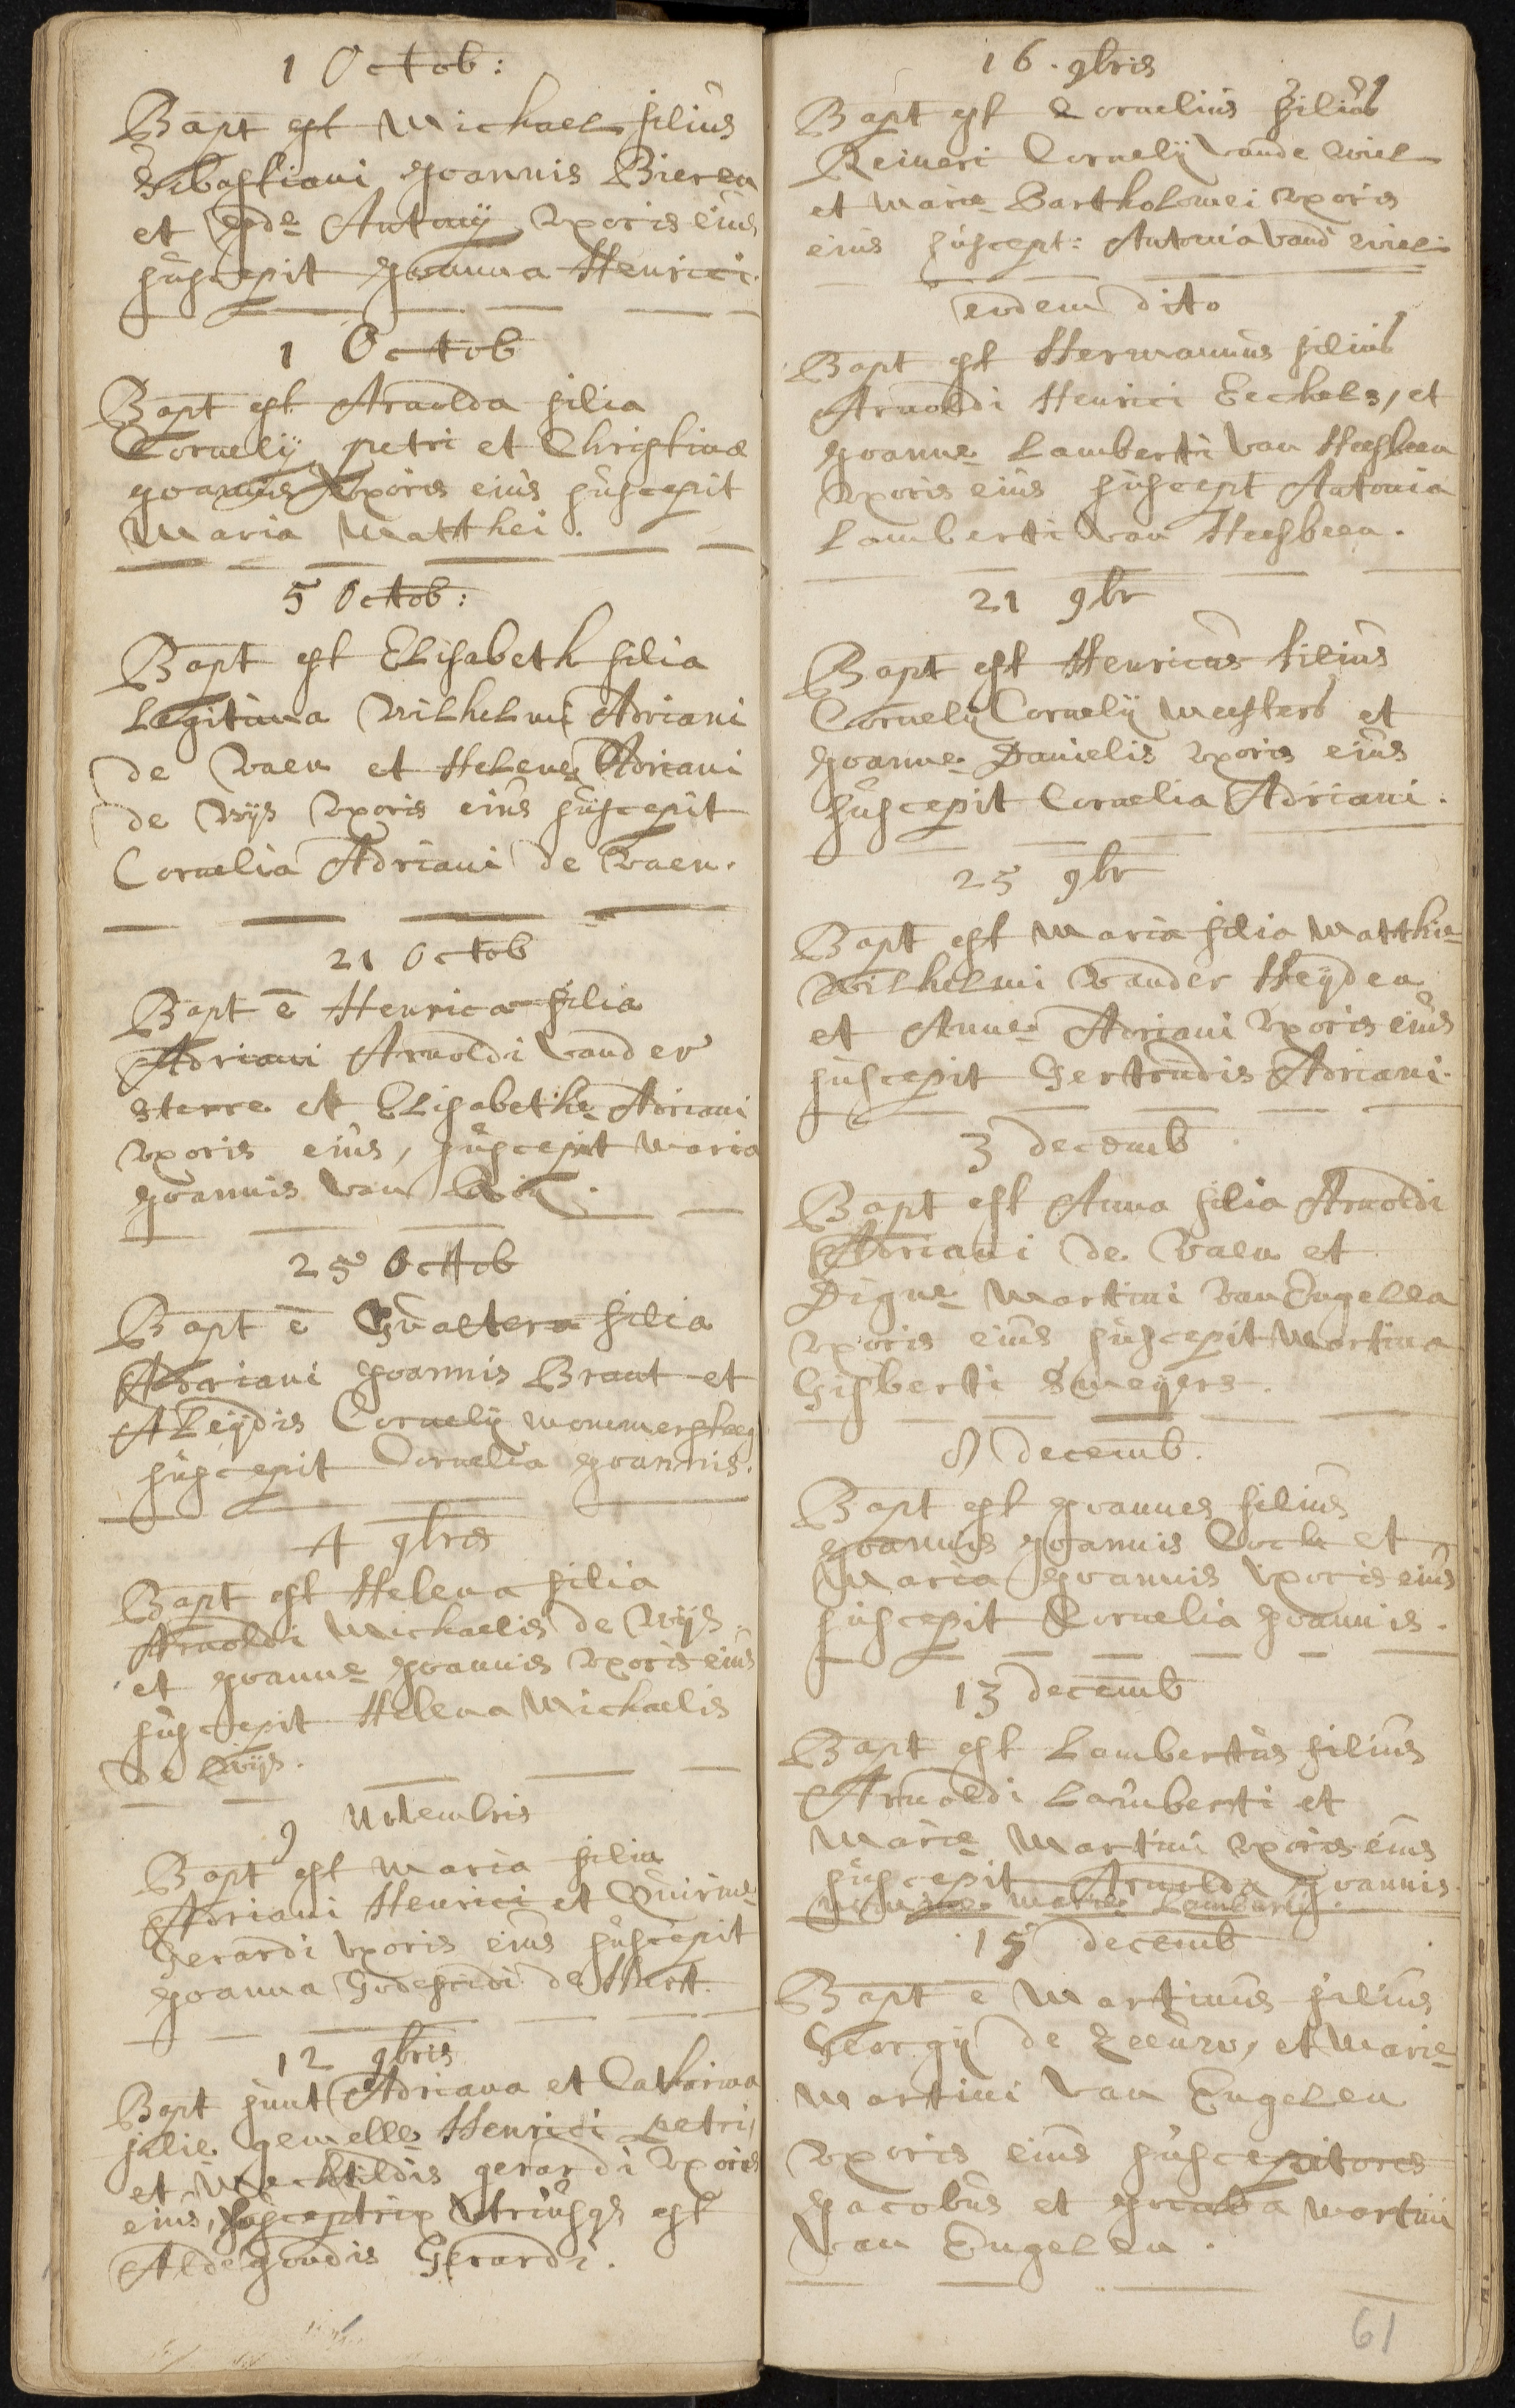 1 Octob:
Bapt est Michael filius
Sebastiani Joannis Bieren
et Antonij uxoris eius
suscepit Joanna Henrici.
1 Octob
Bapt est Arnolda filia
Cornelij petri et Christinae
Joannis uxoris eius suscepit
Maria Matthei.
5 Octob:
Bapt est Elisabeth filia
Legitima Wilhelmi Adriani
de vaen et Helene Adriani
de wijs uxoris eius suscepit
Cornelia Adriani de vaen.
21 Octob
Bapt ē Henrica filia
Adriani Arnoldi vander
sterre et Elisabethe Adriani
uxoris eius, suscepit Maria
Joannis van
25 Octob
Bapt ē Gualtera filia
Adriani Joannis Brant et
Aleijdis Cornelij Mommersteeg
suscepit Cornelia Joannis.
4 9bris
Bapt est Helena filia
Arnoldi Michaelis de wijs
et Joanne Joannis uxoris eius
suscepit Helena Michaelis
de wijs.
9 Novembris
Bapt est Maria filia
Adriani Henrici et Quirine
Gerardi uxoris eius suscepit
Joanna Godefridi de Hart.
12 9bris
Bapt sunt Adriana et Catharina
filie gemelle Henrici petri,
et Mechtildis gerardi uxoris
eius, susceptrix utriusqs est
Aldegondis Gerardi.
16. 9bris
Bapt est Cornelius filius
Reineri Cornelij vande wiel
et Marie Bartholomei uxoris
eius suscept: Antonia vand wiel.
eodem dito
Bapt est Hermannus filius
Arnoldi Henrici Eechels, et
Joanne Lamberti van Heesbeen
uxoris eius suscept Antonia
Lamberti van Heesbeen.
21 9br
Bapt est Henricus filius
Cornelij Cornelij Meesters et
Joanne Danielis uxoris eius
suscepit Cornelia Adriani.
25 9br
Bapt est Maria filia Matthie
Wilhelmi vander Heijden
et Anne Adriani uxoris eius
suscepit Gertrudis Adriani.
3 decemb
Bapt est Anna filia Arnoldi
Adriani de vaen et
Digne Martini van Engelen
uxoris eius suscepit Martina
Gisberti Smeijers.
8 decemb.
Bapt est Joannes filius
Joannis Joannis Cock et
Maria Joannis uxoris eius
suscepit Cornelia Joannis.
13 decemb
Bapt est Lambertus filius
Arnoldi Lamberti et
Marie Martini uxoris eius
suscepit Arnolda Joannis.
nomine Marie Lamberti.
15 decemb
Bapt e Martinus filius
Georgij de Leeuw, et Marie
Martini van Engelen
uxoris eius susceptores
Jacobus et Martini
van Engelen.
61